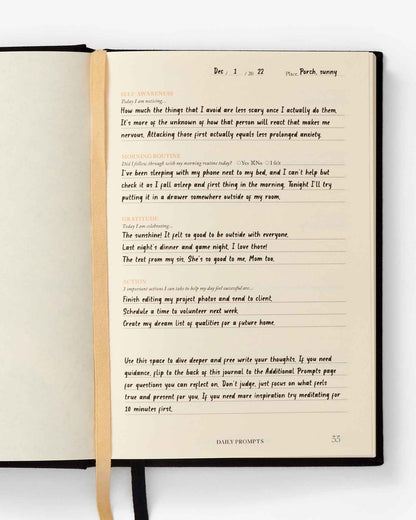 Dec / 1 / 20 22 Place Porch, sunny
SELF AWARENESS
Today I am noticing...
How much the things that I avoid are less scary once I actually do them.
It's more of the unknown of how that person will react that makes me
nervous. Attacking those first actually equals less prolonged anxiety.
MORNING ROUTINE
Did I follow through with my morning routine today? ○Yes ⌧No ○1 6/1
I've been sleeping with my phone next to my bed, and I can't help but
check it as I fall asleep and first thing in the morning. Tonight I'll try
putting it in a drawer somewhere outside of my room.
GRATITUDE
Today I am celebrating...
The sunshine! It felt so good to be outside with everyone.
Last night's dinner and game night. I love those!
The text from my sis. She's so good to me. Mom too.
ACTION
3 important actions I can take to help my day feel successful are...
Finish editing my project photos and send to client.
Schedule a time to volunteer next week.
Create my dream list of qualities for a future home.
Use this space to dive deeper and free write your thoughts. If you need
guidance, flip to the back of this journal to the Additional Prompts page
for questions you can reflect on. Don't judge, just focus on what feels
true and present for you. If you need more inspiration try meditating for
10 minutes first.
DAILY PROMPTS 33